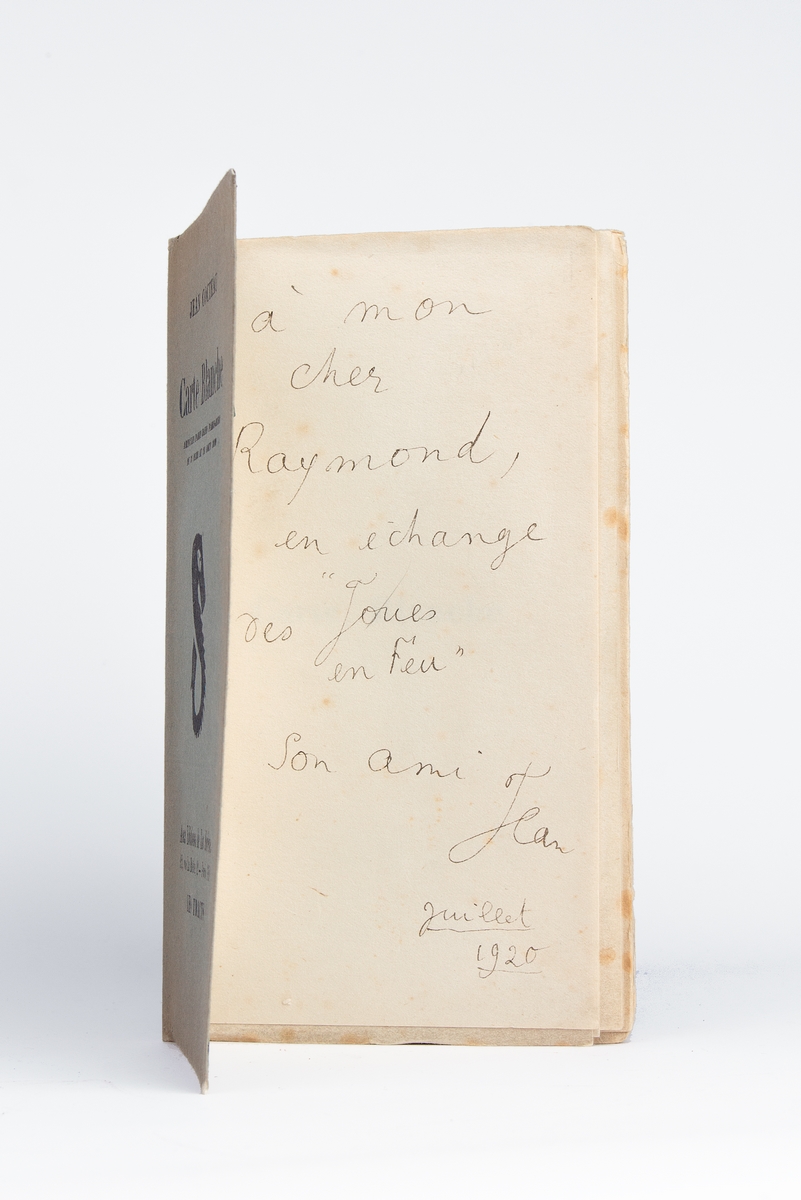 JEAN COCTEAU
Carte Blanche
à mon
cher
Raymond,
en échange
des "Joues
en Feu"
Son ami
Jean
Juillet
1920